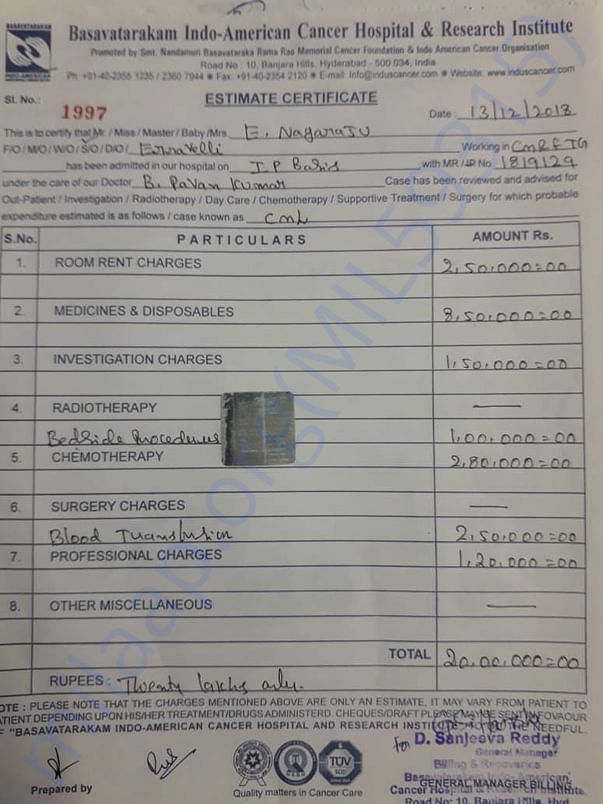 BASAVATARAKAM
INDO-AMERICAN
Basavatarakam Indo-American Cancer Hospital & Research Institute
Promoted by Smt. Nandamuri Basavatarska Rama Rao Memorial Cancer Foundation & Indo American Cancer Organisation
Road No : 10, Banjara Hills, Hyderabad - 500 034, India
Ph : +91-40-2355 1235 / 2360 7944 ● Fax : +91-40-2354 2120 ● E-mail: Info@induscancer.com ● Website: www.induscancer.com
ESTIMATE CERTIFICATE
Sl. No.: 1997
Date : 13/12/2018
This is to certify that Mr. / Miss / Master / Baby /Mrs. E. Nagaraju
F/O / M/O / W/O / S/O / D/O / Erravelli Working in CMRF TG
has been admitted in our hospital on I P Basis with MR / IP No. 1819129
under the care of our Doctor B. Pavan Kumar Case has been reviewed and advised for
Out-Patient / Investigation / Radiotherapy / Day Care / Chemotherapy / Supportive Treatment / Surgery for which probable
expenditure estimated is as follows / case known as CML
S.No. PARTICULARS AMOUNT Rs.
1. ROOM RENT CHARGES 2,50,000=00
2. MEDICINES & DISPOSABLES 8,50,000=00
3. INVESTIGATION CHARGES 1,50,000=00
4. RADIOTHERAPY —
Bedside Procedures 1,00,000=00
5. CHEMOTHERAPY 2,80,000=00
6. SURGERY CHARGES —
Blood Transfusion 2,50,000=00
7. PROFESSIONAL CHARGES 1,20,000=00
8. OTHER MISCELLANEOUS —
TOTAL 20,00,000=00
RUPEES : Twenty lakhs only.
OTE : PLEASE NOTE THAT THE CHARGES MENTIONED ABOVE ARE ONLY AN ESTIMATE, IT MAY VARY FROM PATIENT TO
ATIENT DEPENDING UPON HIS/HER TREATMENT/DRUGS ADMINISTERD. CHEQUES/DRAFT PLEASE MAY BE SENT INFOVAOUR
F "BASAVATARAKAM INDO-AMERICAN CANCER HOSPITAL AND RESEARCH INSTITUTE" THE NEEDFUL.
For D. Sanjeeva Reddy
General Manager
Billing & Recoveries
Basavatarakam Indo-American
GENERAL MANAGER BILLING
Cancer Hospital & Research Institute
Road No: 10, Banjara Hills, Hyd
TUV
Prepared by
Quality matters in Cancer Care